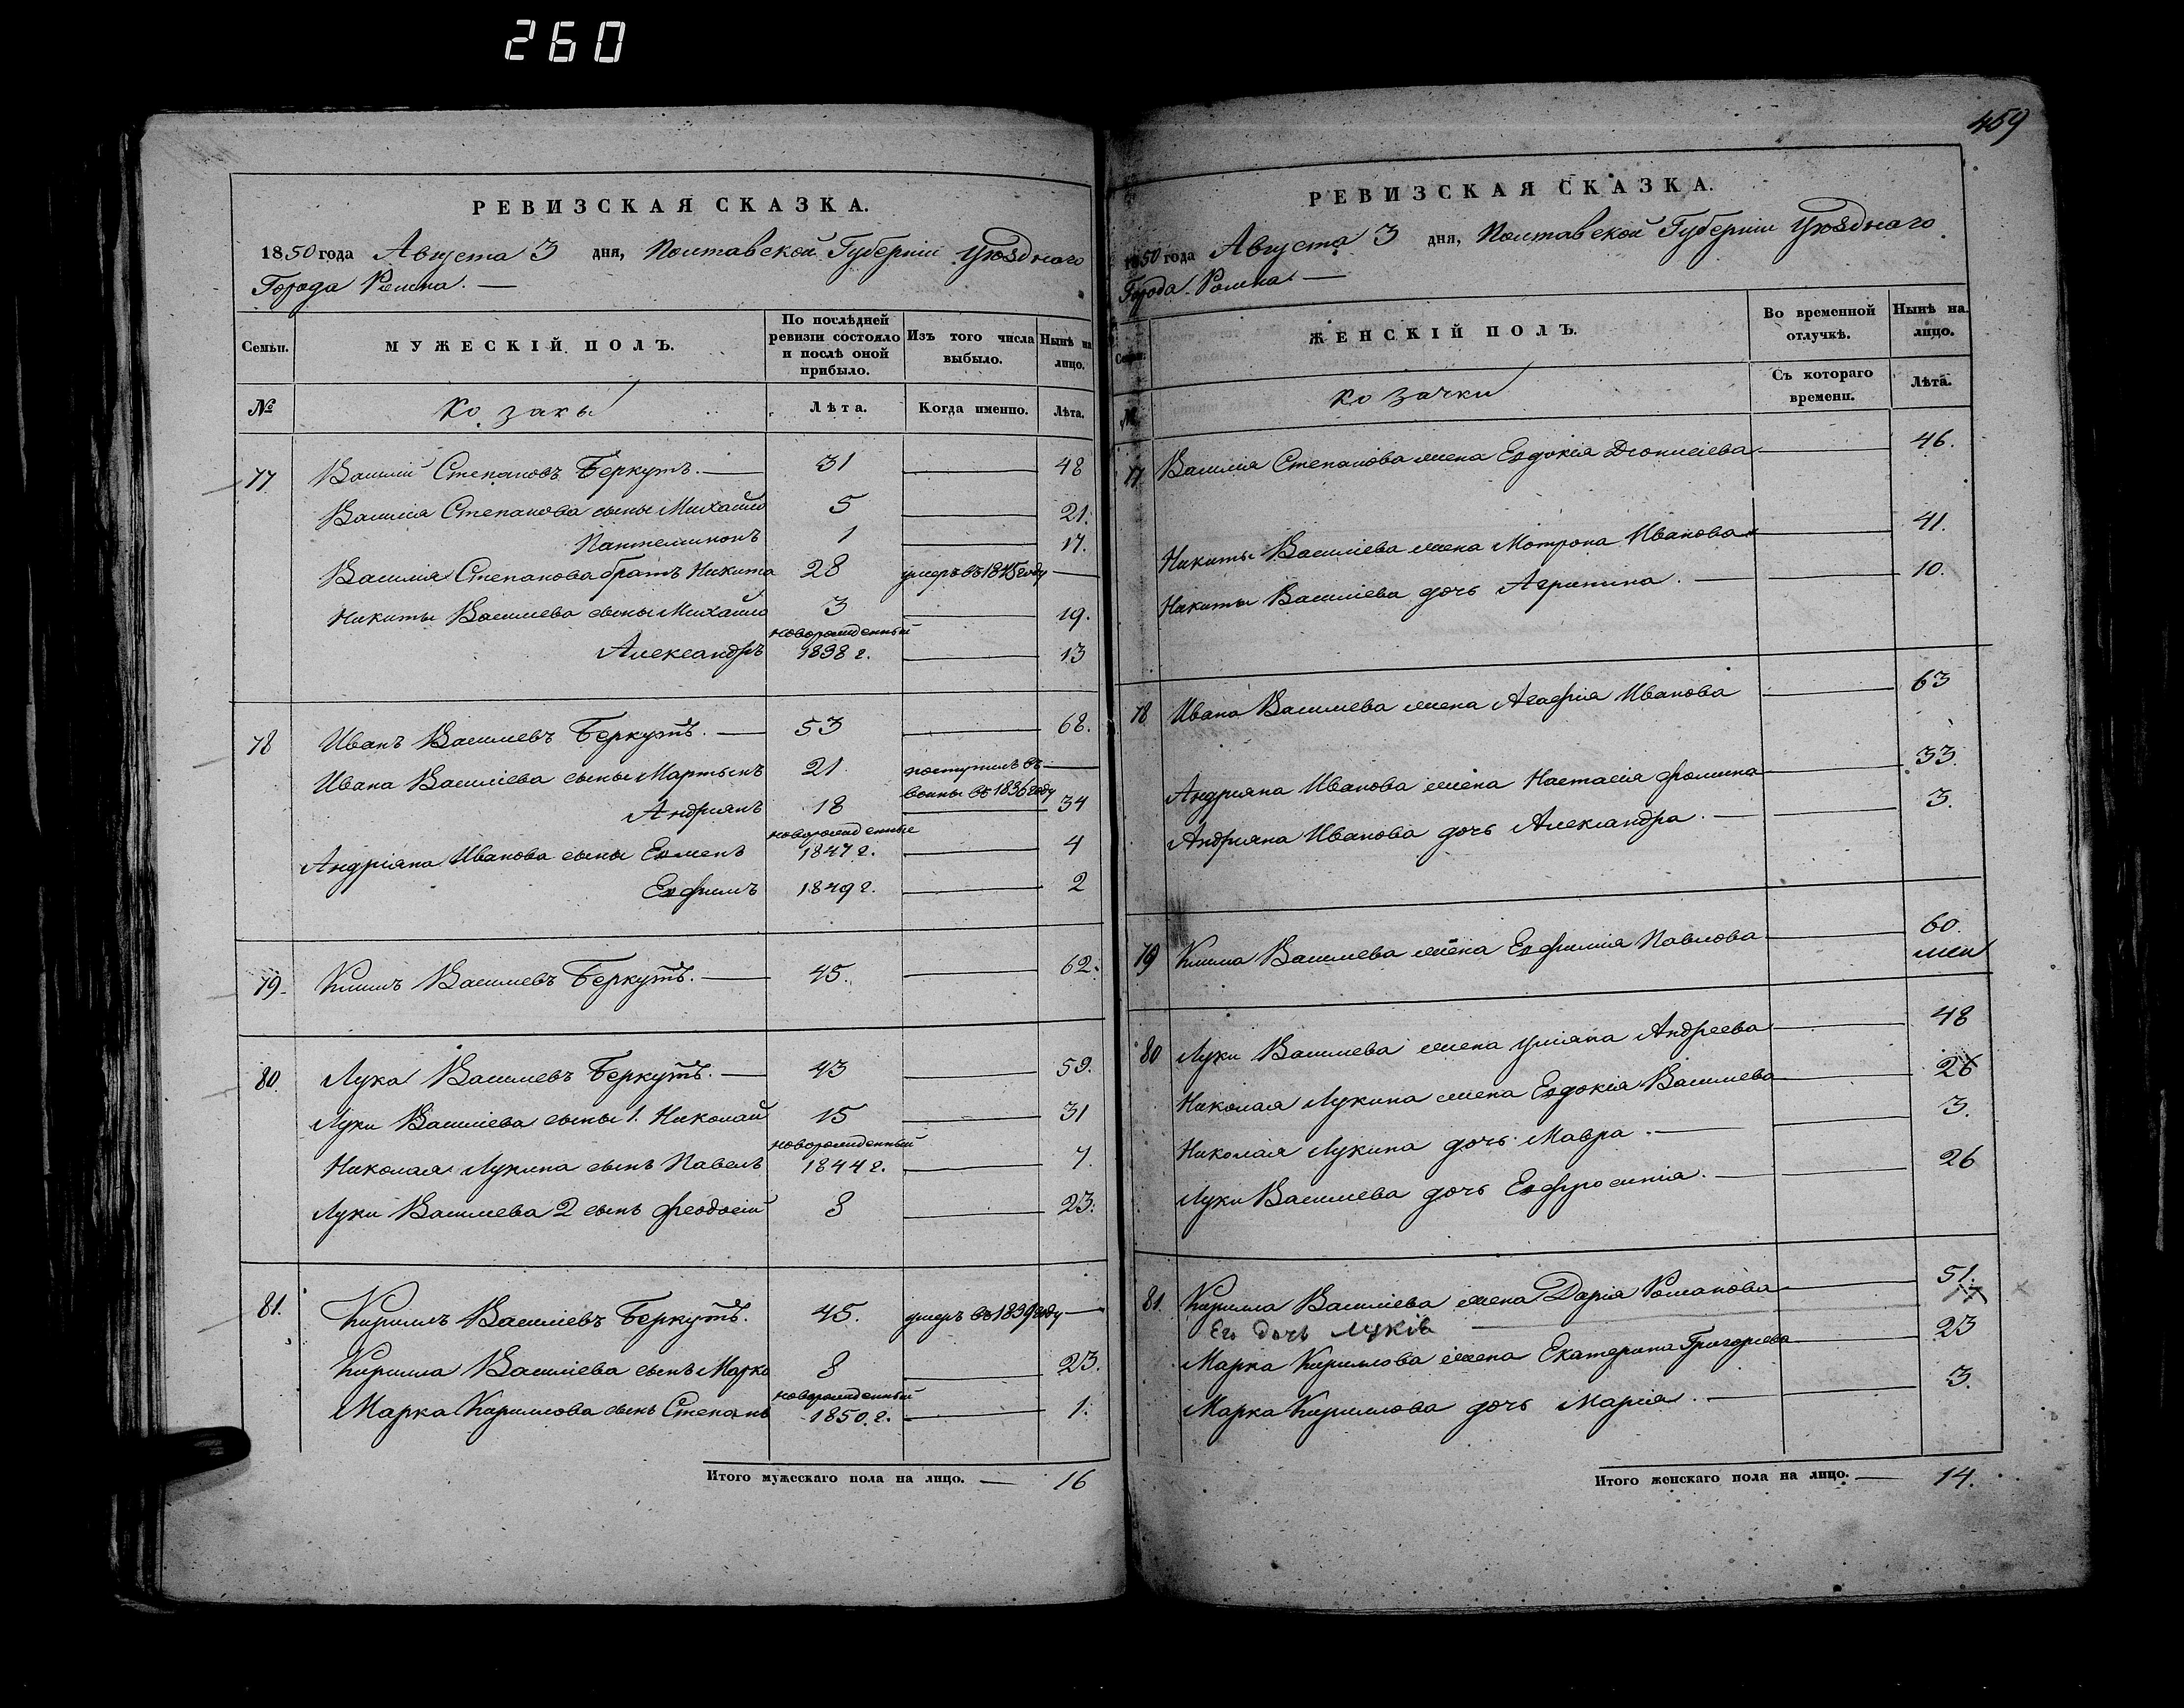 260
РЕВИЗСКАЯ СКАЗКА.
1850 года Августа 3 дня, Полтавской Губерніи Уѣзднаго
Города Ромна. —
Семьи. МУЖЕСКІЙ ПОЛЪ. По послѣдней ревизіи состояло и послѣ оной прибыло. Изъ того числа выбыло. Нынѣ на лицо.
№ Козаки Лѣта. Когда именно. Лѣта.
77 Василій Степановъ Беркутъ. — 31 — 48
Василія Степанова сыны Михайло 5 — 21.
Пантелимонъ 1 — 17.
Василія Степанова братъ Никита 28 умеръ въ 1845 году —
Никиты Василіева сыны Михайло 3 — 19.
новорожденный
Александръ 1838 г. — 13
78 Иванъ Василіевъ Беркутъ. — 53 — 68.
Ивана Василіева сыны Мартынъ 21 поступилъ въ —
воины въ 1836 году
Андріянъ 18 — 34
новорожденные
Андріяна Иванова сыны Евменъ 1847 г. — 4
Евфимъ 1849 г. — 2
79. Климъ Василіевъ Беркутъ. — 45. — 62.
80. Лука Василіевъ Беркутъ. — 43 — 59.
Луки Василіева сыны 1. Николай 15 — 31
новорожденный
Николая Лукина сынъ Павелъ 1844 г. — 7.
Луки Василіева 2 сынъ Феодосій 8 — 23.
81. Кирилъ Василіевъ Беркутъ. 45. умеръ въ 1839 году —
Кирилла Василіева сынъ Марко 8 — 23.
новорожденный
Марка Кириллова сынъ Степанъ 1850. г. — 1.
Итого мужескаго пола на лицо. — 16
459
РЕВИЗСКАЯ СКАЗКА.
1850 года Августа 3 дня, Полтавской Губерніи Уѣзднаго
Города Ромна. —
Семьи. ЖЕНСКІЙ ПОЛЪ. Во временной отлучкѣ. Нынѣ на лицо.
№ Козачки Съ котораго времени. Лѣта.
77 Василія Степанова жена Евдокія Діонисіева — 46.
Никиты Василіева жена Мотрона Иванова — 41.
Никиты Василіева дочь Агрипина. — — 10.
78 Ивана Василіева жена Агафія Иванова — 63
Андріяна Иванова жена Настасія Фомина — 33.
Андріяна Иванова дочь Александра. — — 3.
79 Клима Василіева жена Евфимія Павлова — 60.
80 Луки Василіева жена Уліяна Андреева — 48
Николая Лукина жена Евдокія Василіева — 26
Николая Лукина дочь Мавра. — — 3.
Луки Василіева дочь Евфросинія. — — 26
81. Кирилла Василіева жена Дарія Романова — 51.
Его дочь —
Марка Кириллова жена Екатерина Григоріева — 23
Марка Кириллова дочь Марія. — — 3.
Итого женскаго пола на лицо. — 14.